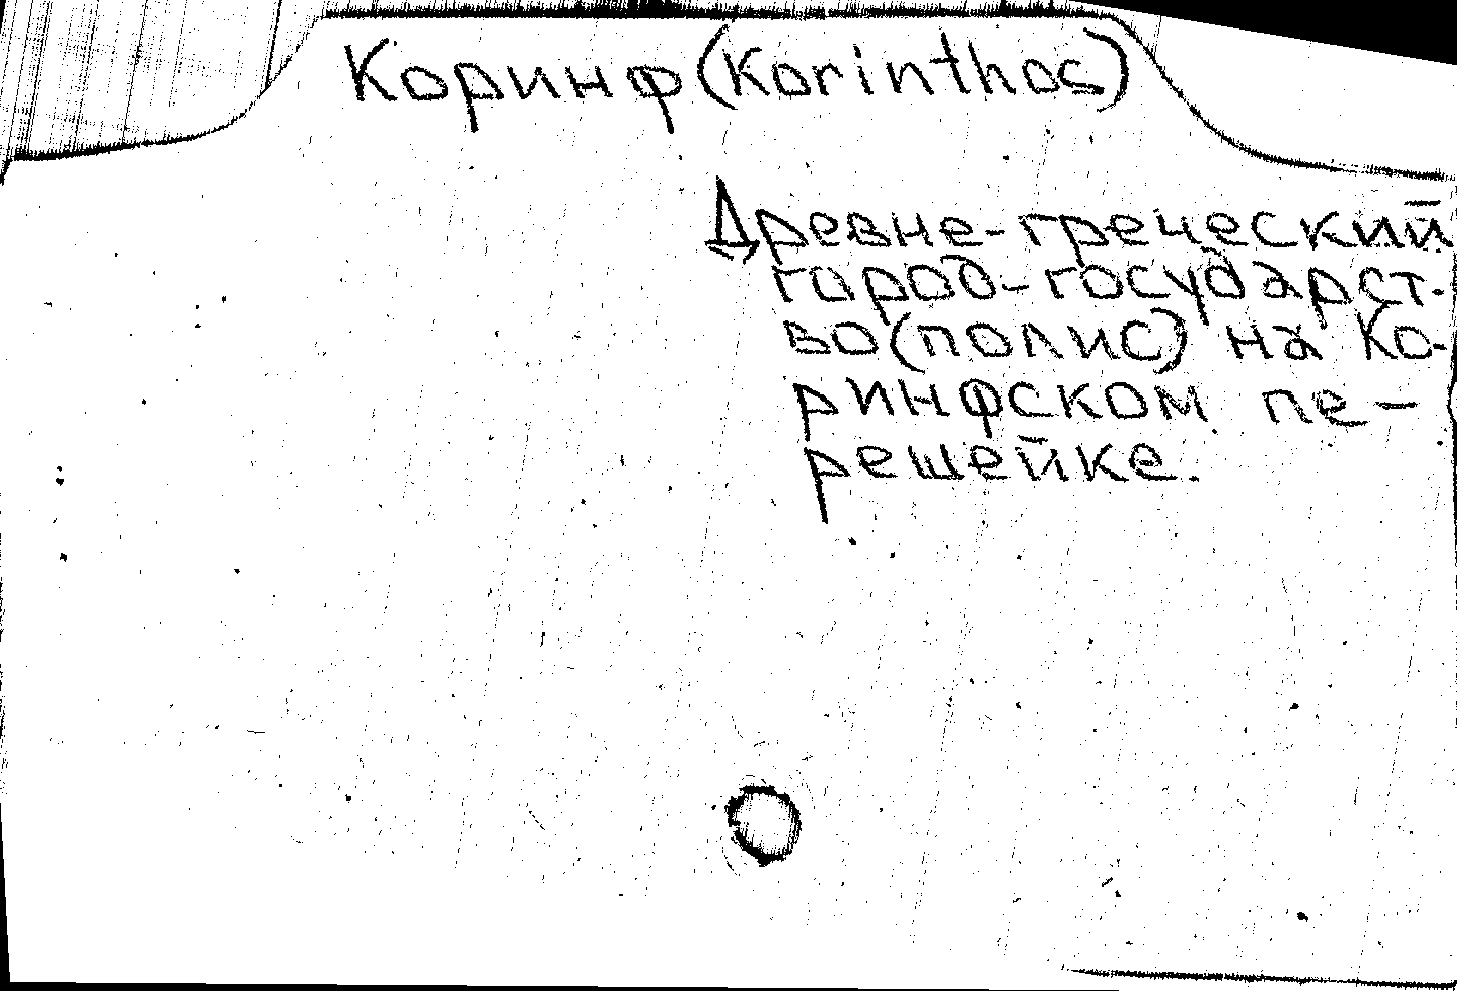 Коринф (Korinthos)
Древне-греческий
город-государст-
во (полис) на Ко-
ринфском пе-
решейке.